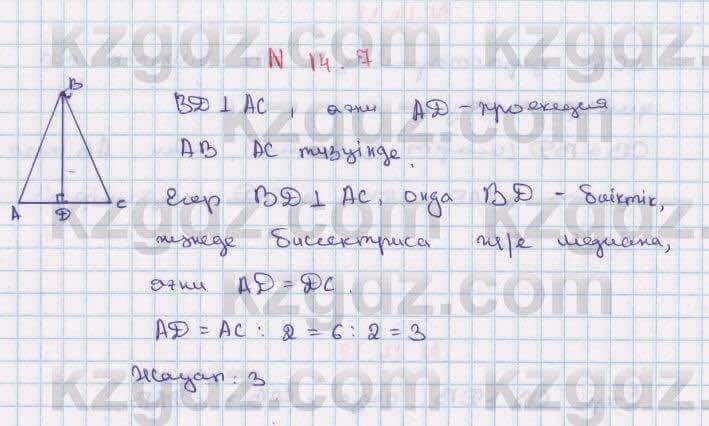 N 14.7
BD ⊥ AC, яғни AD - проекция
AB AC түзуінде.
Егер BD ⊥ AC, онда BD - биіктік,
және де биссектриса ж/е медиана,
яғни AD = DC.
AD = AC : 2 = 6 : 2 = 3
Жауап: 3
B
A
D
C
kzgdz.com
kzgdz.com
kzgdz.com
kzgdz.com
kzgdz.com
kzgdz.com